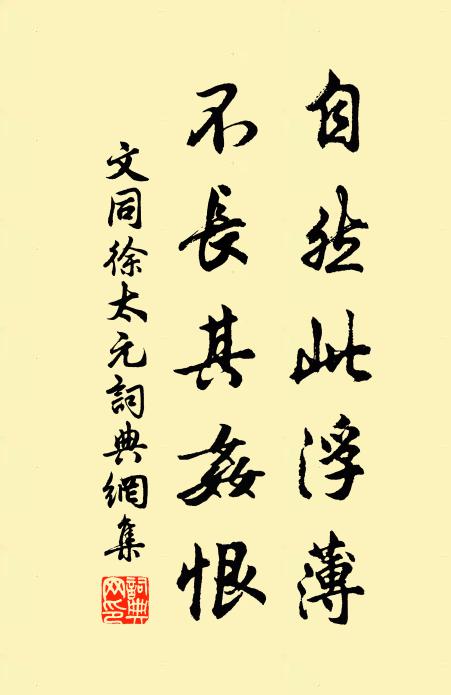 自然此浮薄
不長其姦恨
文同徐太元詞典網集
詞典網印